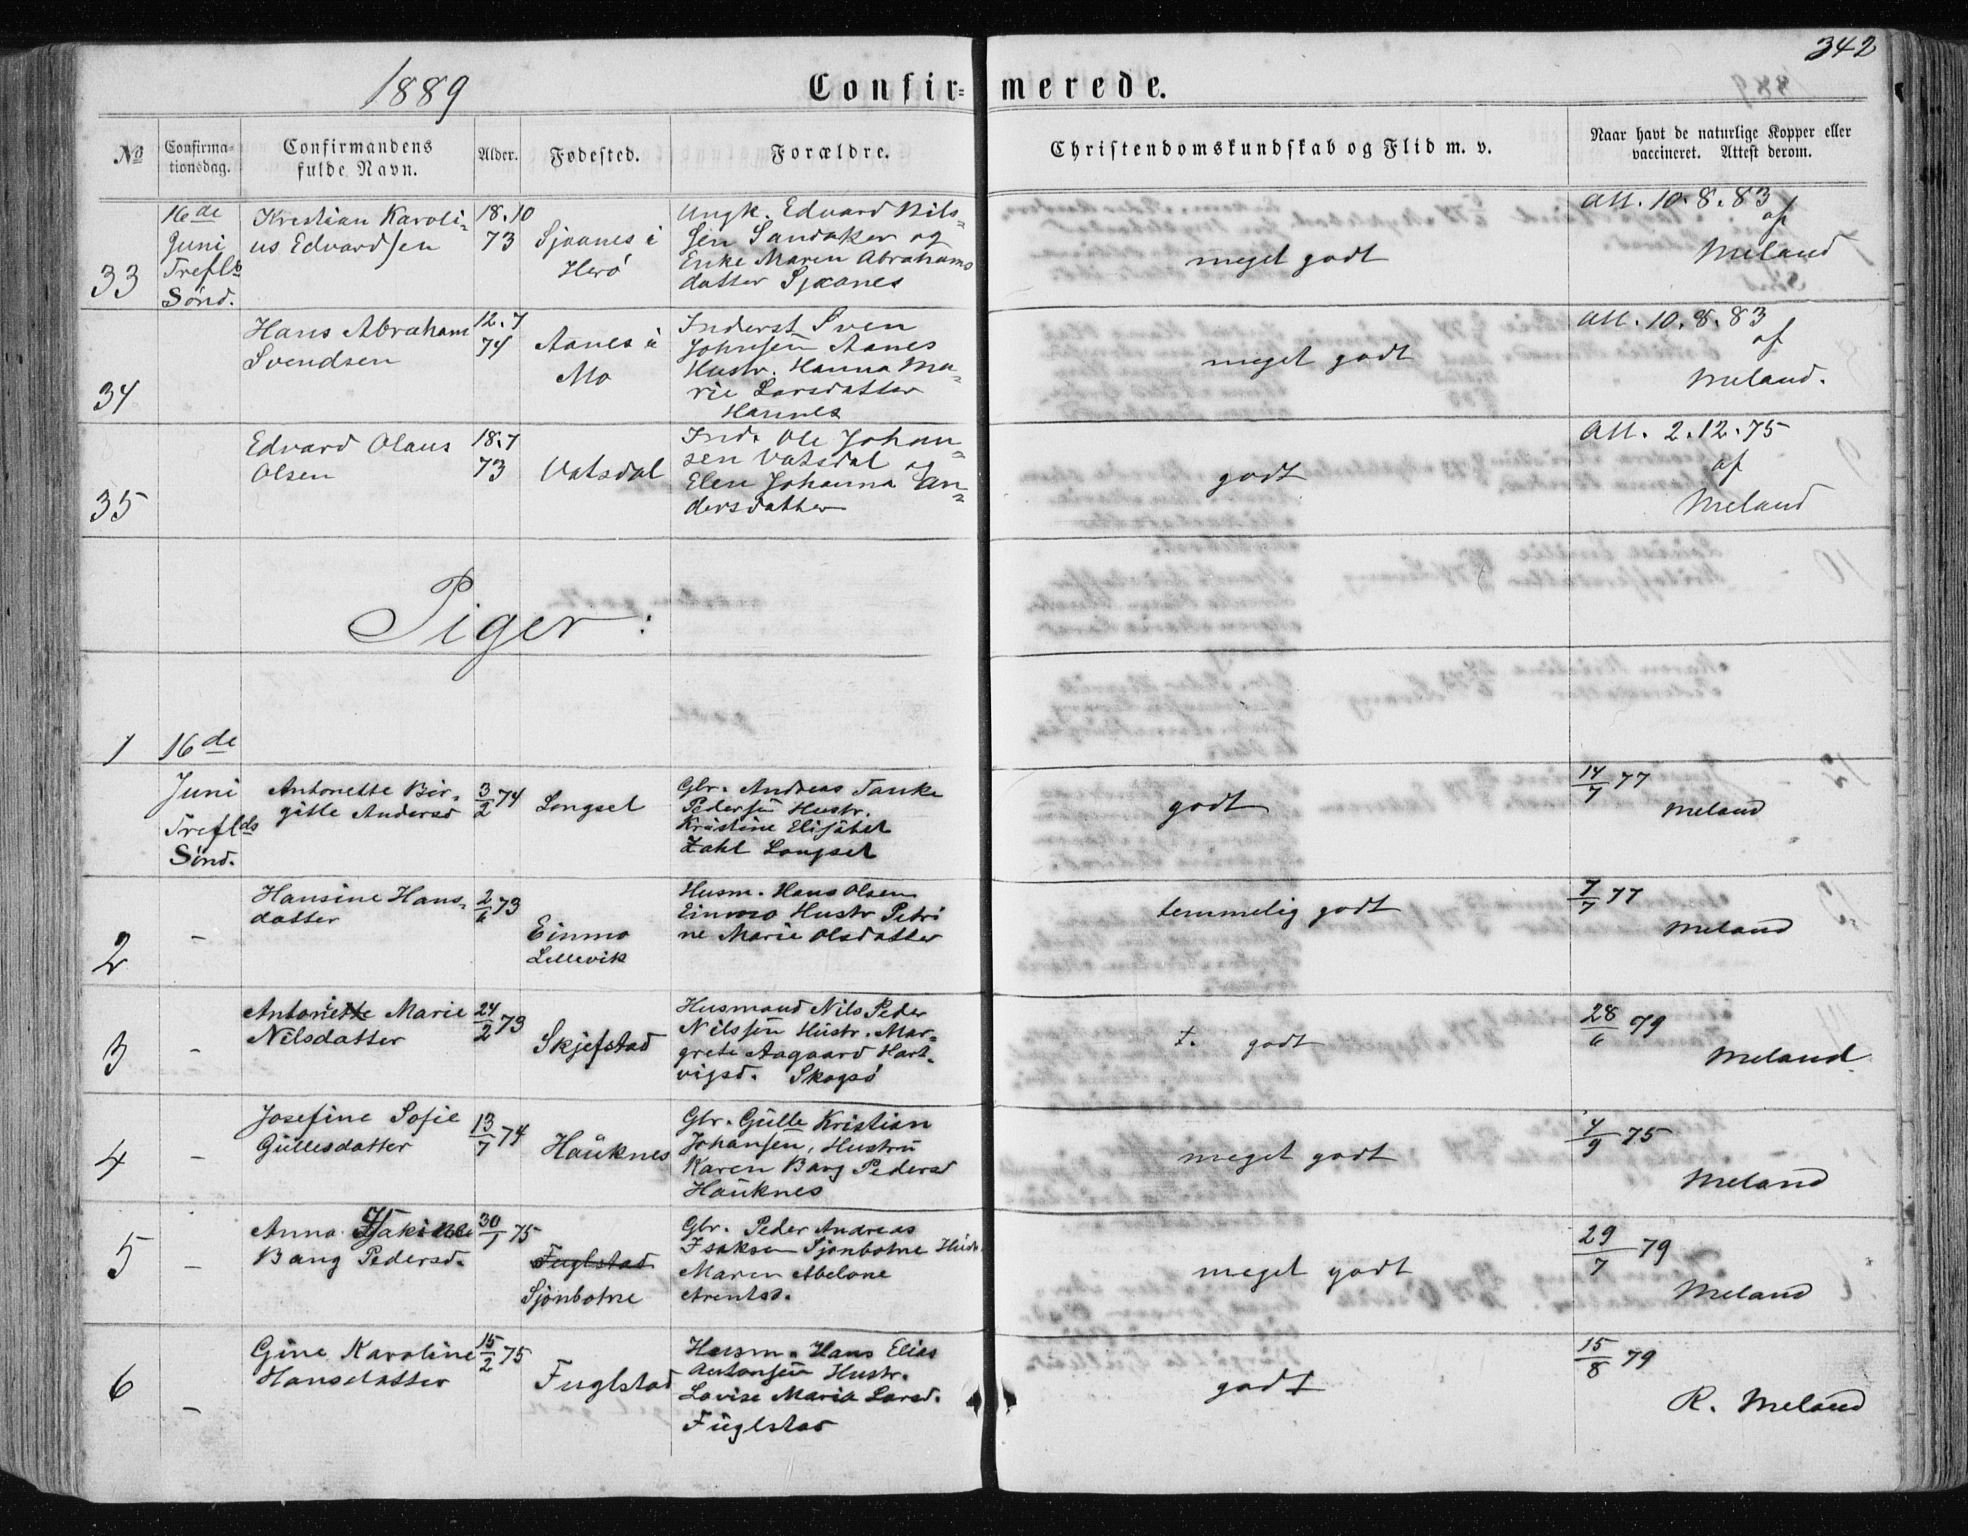 342
1889
Confirmerede.
No
Confirma-
tionsdag.
Confirmandens
fulde Navn.
Alder.
Fødested.
Forældre.
Christendomskundskab og Flid m. v.
Naar havt de naturlige Kopper eller
vaccineret. Attest derom.
33
16de
Juni
Trefl
Sønd.
Kristian Karoli-
us Edvardsen
18.10
73
Sjaanes i
Herø
Ungk. Edvard Nils-
sen Sandaker og
Enke Maren Abrahams
datter Sjaanes
meget godt
Att. 10.8.83
af
Meland
34
Hans Abraham
Svendsen
12.7
74
Aanes i
Mo
Inderst Sven
Johnsen Aanes
Hustr. Hanna Ma-
rie Larsdatter
Hannes
meget godt
Att. 10.8.83
af
Meland.
35
Edvard Olaus
Olsen
18.7
73
Vatsdal
Ind. Ole Johan-
sen Vatsdal og
Elen Johanna An-
dersdatter
godt
Att. 2.12.75
af
Meland
Piger:
1
16de
Juni
Trefl.ds
Sønd.
Antonette Bir-
gitte Andersd
3/2 74
Langset
Gbr. Andreas Tanke
Pedersen Hustr.
Kristine Elisabet
Zahl Langset
godt
14/7 77
Meland
2
-
Hansine Hans-
datter
2/6 73
Einmo
Lillevik
Husm. Hans Olsen
Einmo Hustr Petri
ne Marie Olsdatter
temmelig godt
7/7 77
Meland
3
-
Antonette Marie
Nilsdatter
24/2 73
Skjefstad
Husmand Nils Peder
Nilssen Hustr. Mar-
grete Aagaard Hart-
vigsd. Skogsö
t. godt
28/6 79
Meland
4
-
Josefine Sofie
Gullesdatter
13/7 74
Hauknes
Gbr. Gulle Kristian
Johansen, Hustru
Karen Bang Pedersd
Hauknes
meget godt
7/9 75
Meland
5
-
Anna Isakine
Bang Pedersd.
30/1 75
Fuglstad
Sjonbotne
Gbr. Peder Andreas
Isaksen Sjonbotne Hustr.
Maren Abelone
Arentsd.
meget godt
29/7 79
Meland
6
-
Gine Karoline
Hansdatter
15/2 75
Fuglstad
Husm. Hans Elias
Antonsen Hustr.
Lovise Maria Larsd.
Fuglstad
godt
15/8 79
R. Meland